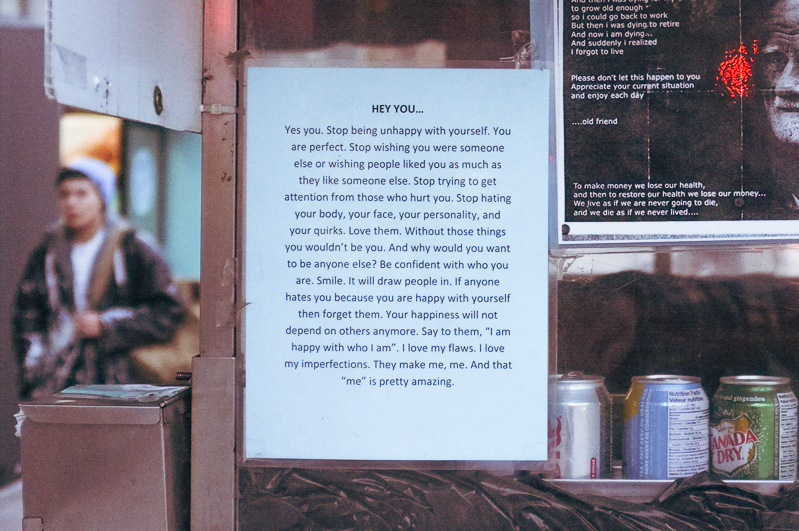 HEY YOU...
Yes you. Stop being unhappy with yourself. You
are perfect. Stop wishing you were someone
else or wishing people liked you as much as
they like someone else. Stop trying to get
attention from those who hurt you. Stop hating
your body, your face, your personality, and
your quirks. Love them. Without those things
you wouldn't be you. And why would you want
to be anyone else? Be confident with who you
are. Smile. It will draw people in. If anyone
hates you because you are happy with yourself
then forget them. Your happiness will not
depend on others anymore. Say to them, "I am
happy with who I am". I love my flaws. I love
my imperfections. They make me, me. And that
"me" is pretty amazing.
to grow old enough
so i could go back to work
But then i was dying to retire
And now i am dying...
And suddenly i realized
i forgot to live
Please don't let this happen to you
Appreciate your current situation
and enjoy each day
....old friend
To make money we lose our health,
and then to restore our health we lose our money...
We live as if we are never going to die,
and we die as if we never lived....
Nutrition Facts
Valeur nutritive
gingembre
CANADA
DRY